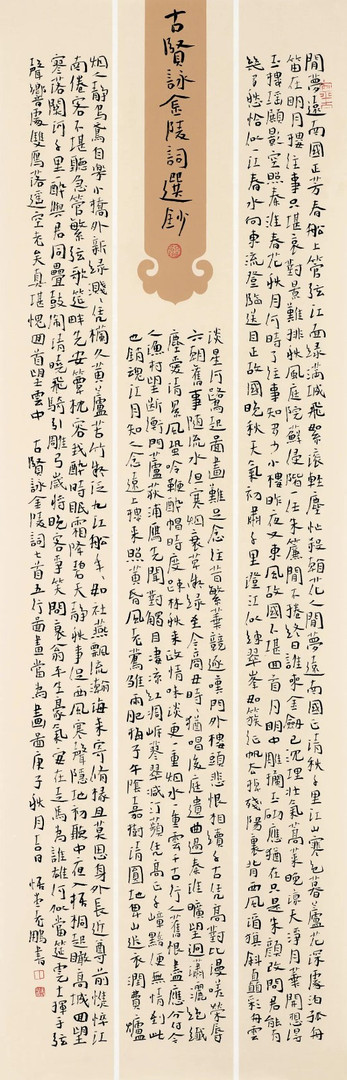 古賢詠金陵詞選鈔
閒夢遠南國正芳春船上管弦江面綠滿城飛絮滾輕塵忙殺看花人閒夢遠南國正清秋千里江山寒色暮蘆花深處泊孤舟
笛在明月樓往事只堪哀對景難排秋風庭院蘚侵階一任朱簾閒不捲終日誰來金劍已沉埋壯氣蒿萊晚涼天淨月華開想得
玉樓瑤殿影空照秦淮春花秋月何時了往事知多少小樓昨夜又東風故國不堪回首月明中雕欄玉砌應猶在只是朱顏改問君能有
幾多愁恰似一江春水向東流登臨送目正故國晚秋天氣初肅千里澄江似練翠峯如簇征帆去棹殘陽裏背西風酒旗斜矗彩舟雲
淡星河鷺起圖畫難足念往昔繁華競逐嘆門外樓頭悲恨相續千古憑高對此漫嗟榮辱
六朝舊事隨流水但寒烟衰草凝綠至今商女時時猶唱後庭遺曲過秦淮曠望迥瀟灑絕纖
塵愛清景風蛩吟鞭醉帽時度疎林秋來政情味淡更一重烟水一重雲千古行人舊恨盡應分付今
人漁村望斷衡門蘆荻浦雁先聞對觸目淒涼紅凋岸蓼翠減汀蘋憑高正千嶂黯便無情到此
也銷魂江月知人念遠上樓來照黃昏風老鶯雛雨肥梅子午陰嘉樹清圓地卑山近衣潤費爐
烟人靜烏鳶自樂小橋外新綠濺濺憑欄久黃蘆苦竹擬泛九江船年年如社燕飄流瀚海來寄修椽且莫思身外長近尊前憔悴江
南倦客不堪聽急管繁弦歌筵畔先安簟枕容我醉時眠霜降碧天靜秋事促西風寒聲隱地初聽中夜入梧桐起瞰高城回望
寥落關河千里醉與君同疊鼓鬧清曉飛騎引雕弓歲將晚客爭笑問衰翁平生豪氣安在走馬為誰雄何似當筵虎士揮手弦
聲響處雙雁落遙空老矣真堪愧回首望雲中古賢詠金陵詞七首五行圖畫當為畫圖庚子秋月上旬鵬書